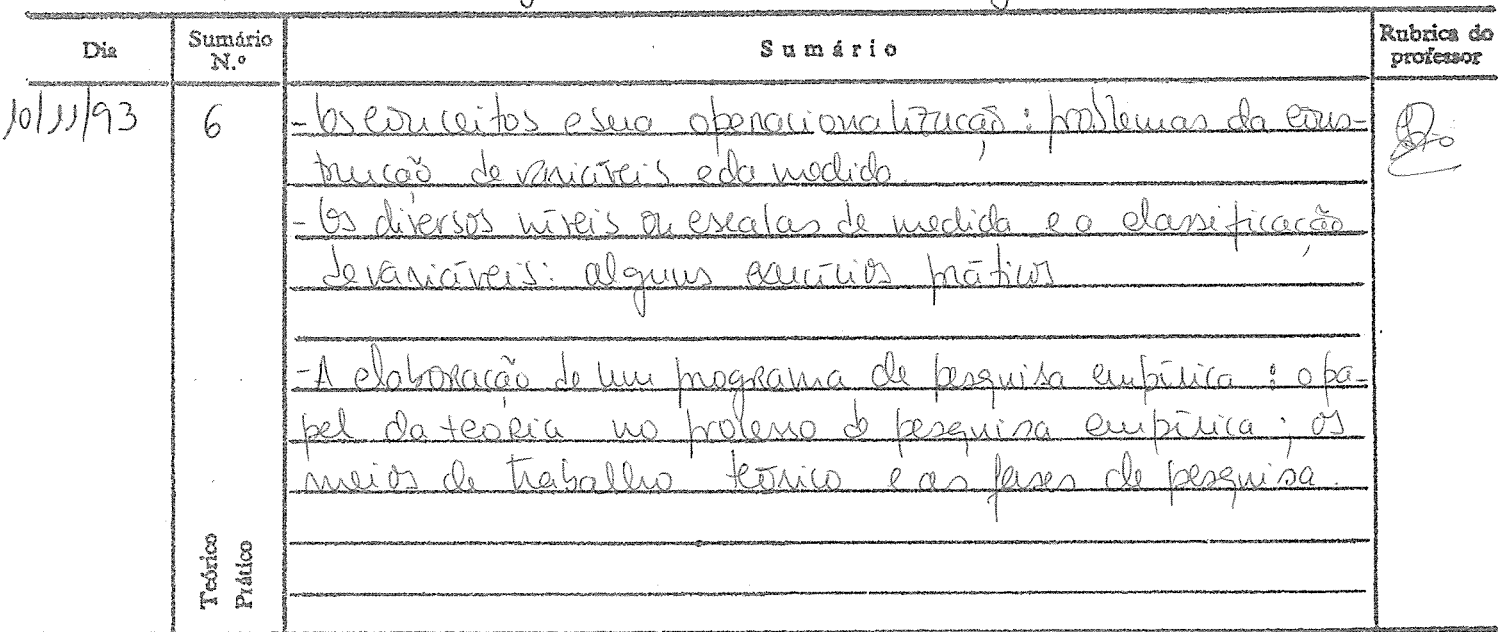 Dia Sumário N.º Sumário Rubrica do professor
10/11/93 6 - Os conceitos e sua operacionalização : problemas da cons-
trução de variáveis e da medida.
- Os diversos níveis ou escalas de medida e a classificação
de variáveis: alguns exercícios práticos
- A elaboração de um programa de pesquisa empírica : o pa-
pel da teoria no processo de pesquisa empírica ; os
meios de trabalho teórico e as fases de pesquisa.
Teórico
Prático